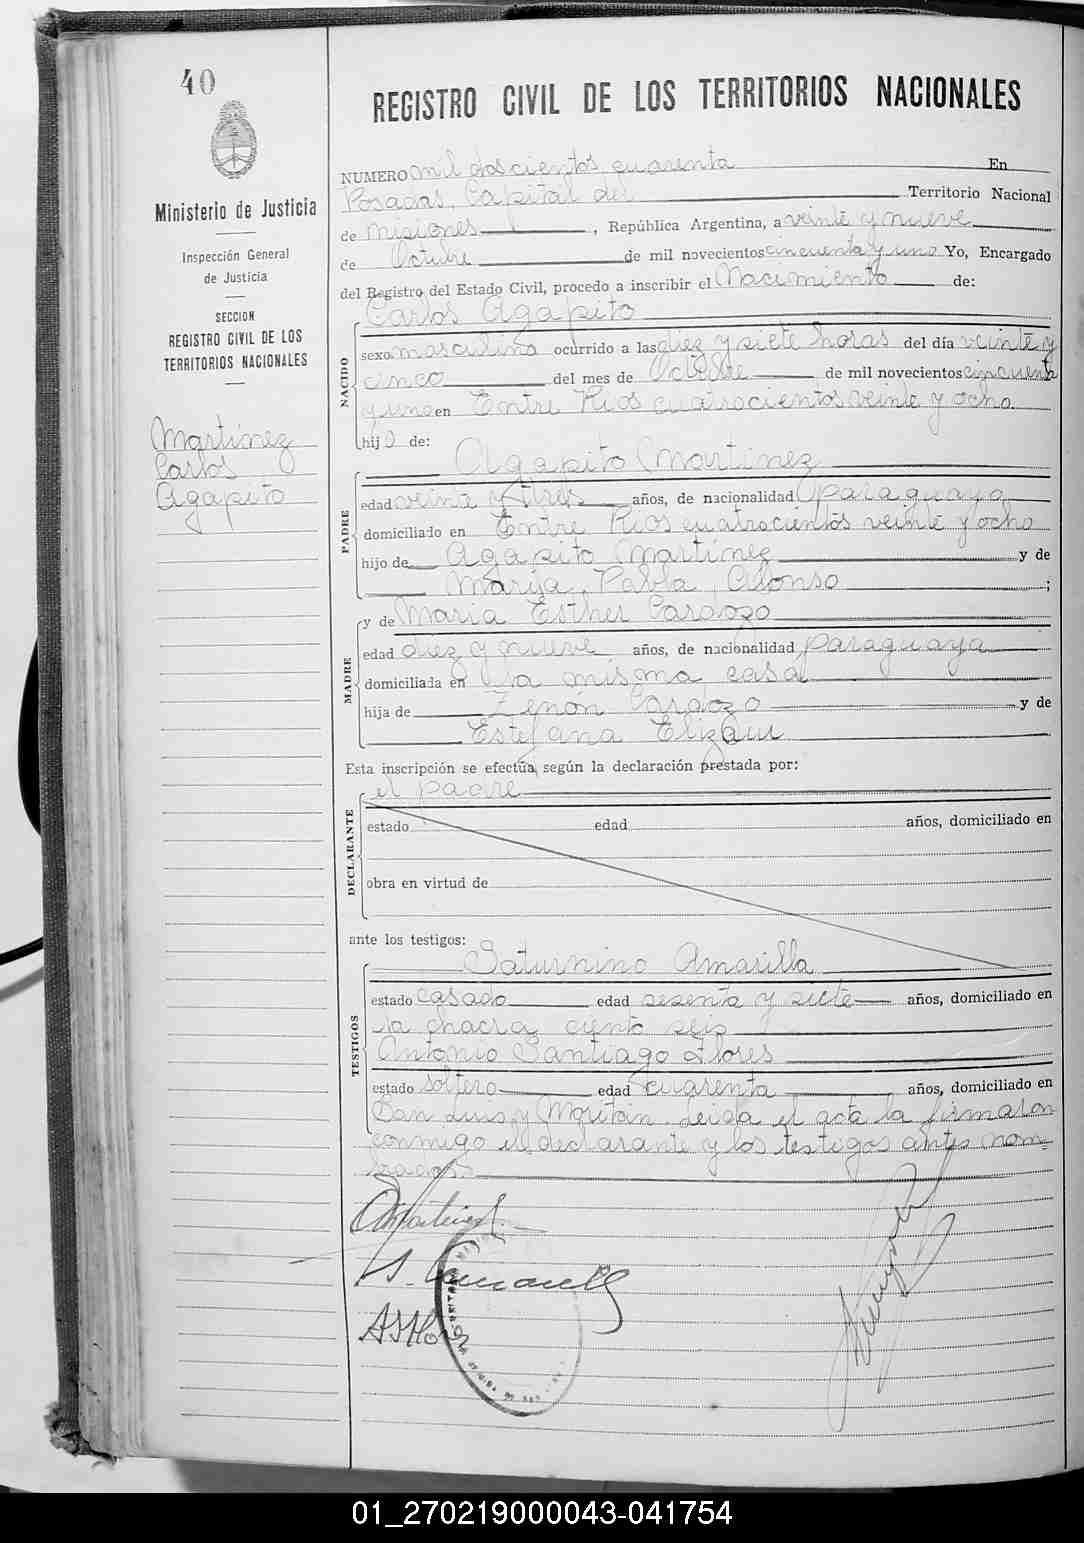 40
REGISTRO CIVIL DE LOS TERRITORIOS NACIONALES
Ministerio de Justicia
Inspección General
de Justicia
SECCION
REGISTRO CIVIL DE LOS
TERRITORIOS NACIONALES
Martínez
Carlos
Agapito
NUMERO mil doscientos cuarenta En
Posadas, Capital del Territorio Nacional
de Misiones, República Argentina, a veinte y nueve
de Octubre de mil novecientos cincuenta y uno Yo, Encargado
del Registro del Estado Civil, procedo a inscribir el Nacimiento de:
NACIDO
Carlos Agapito
sexo masculino ocurrido a las diez y siete horas del día veinte y
cinco del mes de Octubre de mil novecientos cincuenta
y uno en Entre Ríos cuatrocientos veinte y ocho
hijo de:
PADRE
Agapito Martínez
edad veinte y tres años, de nacionalidad paraguaya
domiciliado en Entre Ríos cuatrocientos veinte y ocho
hijo de Agapito Martínez y de
María Pabla Alonso ;
MADRE
y de María Esther Cardozo
edad diez y nueve años, de nacionalidad paraguaya
domiciliada en la misma casa
hija de Zenón Cardozo y de
Estefana Elizaur
Esta inscripción se efectúa según la declaración prestada por:
DECLARANTE
el padre
estado edad años, domiciliado en
obra en virtud de
ante los testigos:
TESTIGOS
Saturnino Amarilla
estado casado edad sesenta y siete años, domiciliado en
la chacra ciento seis
Antonio Santiago Flores
estado soltero edad cuarenta años, domiciliado en
San Luis y Moritán. Leida el acta la firmaron
conmigo el declarante y los testigos antes nom-
brados.
AMartinez
S. Amarilla
ASFlo
01_270219000043-041754